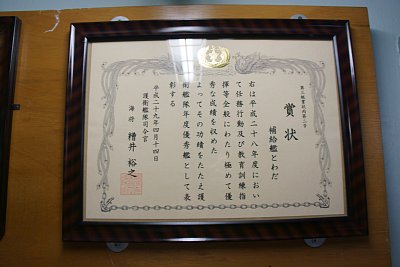 賞状
補給艦とわだ
右は平成二十八年度におい
て任務行動及び教育訓練指
揮等全般にわたり極めて優
秀な成績を収めた
よってその功績をたたえ護
衛艦隊年度優秀艦として表
彰する
平成二十九年四月十四日
護衛艦隊司令官
海将 糟井 裕之